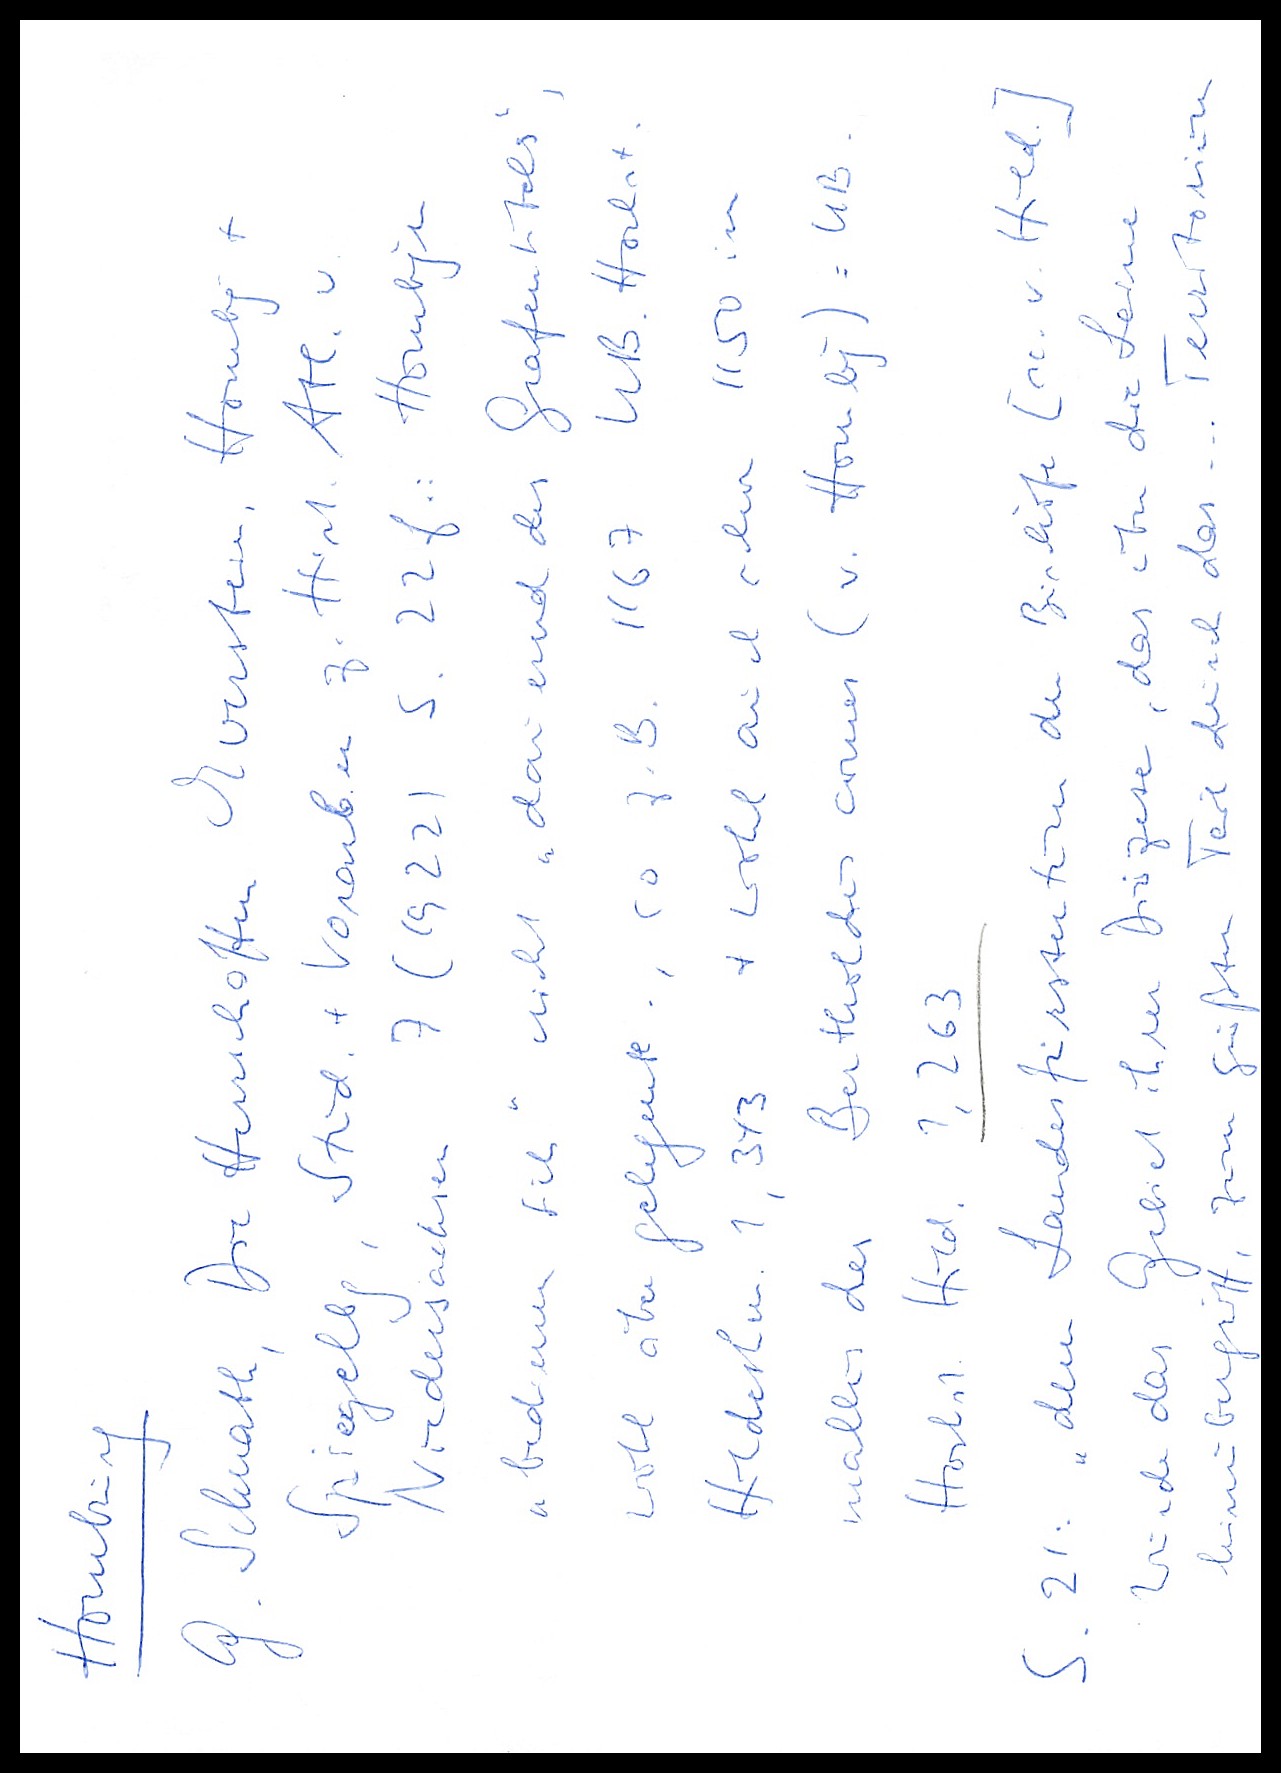 Homburg
G. Schnath, Die Herrschaften Everstein, Hombg +
Spiegelbg, Stud. + Vorarb. en z. Hist. Atl. v.
Niedersachsen 7 (1922) S. 22 f.: Hombger
"bedienen sich" nicht "dauernd des Grafentitels",
wohl aber gelegentl., so z. B. 1167 UB. Hochst.
Hildeshm. 1, 343 + wohl auch schon 1150 im
mallus des Bertholdus comes (v. Hombg) = UB.
Hochst. Hild. 1, 263
S. 21: "dem Landesfürstentum der Bischöfe [sc. v. Hild.]
wurde das Gebiet ihrer Diözese, das über die Leine
hinübergriff, zum größten Teil durch das ... Territorium